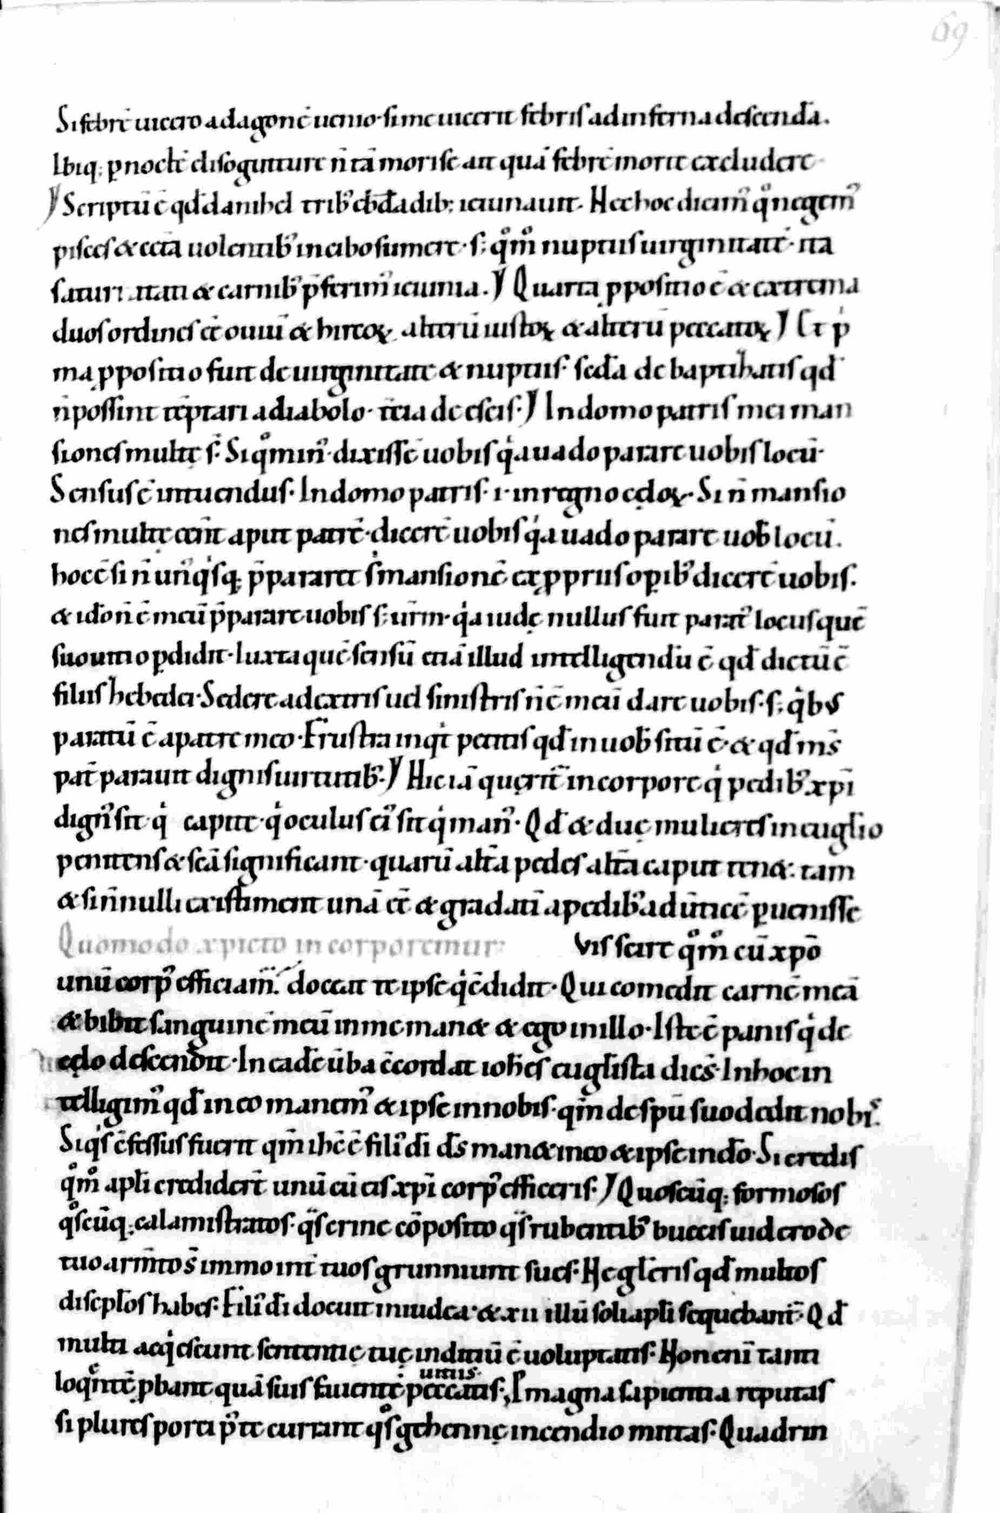 69
Si febrē uicero ad agonē uenio· si me uicerit febris ad inferna descendā.
Ibiq; p noctē disoguttture n̄ tā moris ē aut quā febrē morit excludere·
Scriptū ē qđ danihel trib; ebdađib; ieiunauit· Hec hoc dicim᷒ qͦ negem᷒
pisces & cetā uolentib; in cibo sumere· s; qͦm̄ nuptiis uirginitatē· ita
saturitati & carnib; p̄ferim᷒ ieiunia. Quarta ppositio ē & extrema
duos ordines eē ouiū & hircoꝝ. alterū iustoꝝ & alterū peccatoꝝ Et pͥ
ma ppositio fuit de uirginitate & nuptiis· sedā de baptihatis qđ
n̄ possint tēptari a diabolo· tcia de escis· In domo patris mei man
siones multę s̄· Siqͦmin᷒· dixissē uobis qͥa uado parare uobis locū·
Sensus ē intuendus· In domo patris· i· in regno cęloꝝ· Si n̄ mansio
nes multę eēnt aput patrē· dicerē uobis qͥa uado parare uob locū.
hoc ē si n̄ un᷒qͥsq; p̄pararet s̄ mansionē ex ppriis opib; dicerē uobis·
& idō n̄ ē meū p̄parare uobis s; ur̄m· qͥa iudę nullus fuit parat᷒ locus quē
suo uitio pdidit· Iuxta quē sensū etiā illud intelligendū ē qđ dictū ē
filiis hebedei· Sedere a dextris uel sinistris n̄ ē meū dare uobis· s; qͥbus
paratū ē a patre meo· Frustra inqͥt petitis qđ in uob situ ē· & qđ m̄s
pat̄ parauit dignis uirtutib;· Hic iā querit᷒ in corpore qͥ pedib; xp̄i
dign᷒ sit· qͥ caput· qͥ oculus ei᷒ sit qͥ man᷒· Qđ & duę mulieres in euglio
penitens & scā significant· quarū altā pedes altā caput tenet: tam
& si n̄nulli existiment unā eē & gradati a pedib; ad uticē puenisse
Quomodo xp̄icto in corporemur Vis scire qͦm̄ cū xp̄o
unū corp᷒ efficiam᷒· doceat te ipse qͥ ēdidit· Qui comedit carnē meā
& bibit sanguinē meū in me manet & ego in illo· Iste ē panis qͥ de
cęlo descendit· In eadē ūba ēcordat ioh̄es euglista dic̄s· In hoc in
telligim᷒ qđ in eo manem᷒ & ipse in nobis· qm̄ de spū suo dedit nobis.
Siqͥs ēfessus fuerit qm̄ ihc̄ ē fili᷒ di ds manet in eo & ipse in dō· Si credis
qͦm̄ apli crediderē unū cū eis xp̄i corp᷒ efficeris· Quoscūq; formosos
qͦscūq; calamistratos· qͦs crine cōposito qͦs rubentib; buccis uidero de
tuo arm̄to s̄ immo int̄ tuos grunniunt sues· Hęgleris qđ multos
discplos habes· Fili᷒ di docuit in iudea· & xii illū soli apli sequebant᷒· Qđ
multi acqͥescunt sententię tuę indiciū ē uoluptatis· Honeni tanti
uitiis·
loqͥntē pbant quā suis fauentē peccatis· Et magna sapientia reputas
si plures porci p᷒ te currant qͦs gehennę incendio mittas· Quadrin